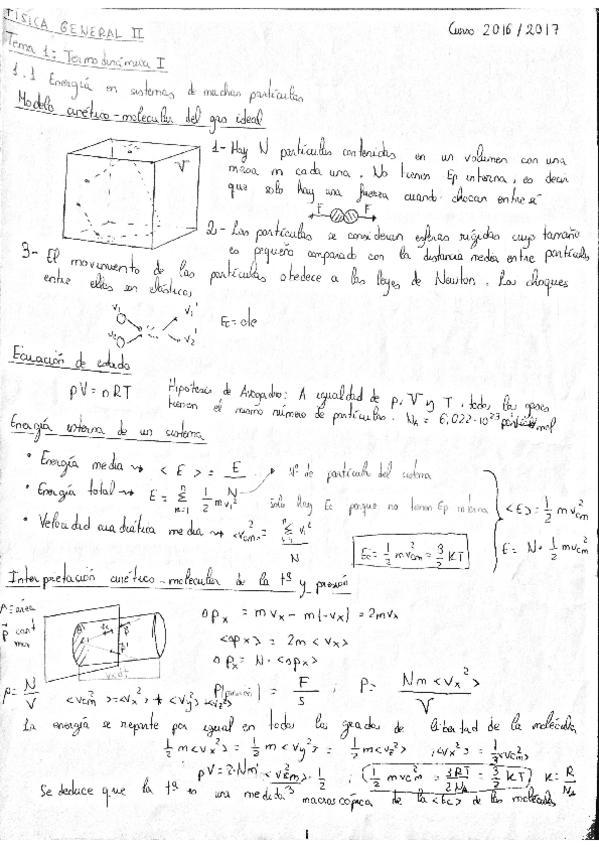 FÍSICA GENERAL II
Curso 2016/2017
Tema 1: Termodinámica I
1.1 Energía en sistemas de muchas partículas
Modelo cinético-molecular del gas ideal
V
1- Hay N partículas contenidas en un volumen con una
masa m cada una. No tienen Ep interna, es decir
que solo hay una fuerza cuando chocan entre sí
F F
2- Las partículas se consideran esferas rígidas cuyo tamaño
es pequeño comparado con la distancia media entre partículas
3- El movimiento de las partículas obedece a las leyes de Newton. Los choques
entre ellas son elásticos
v₁ v₁'
v₂ v₂'
Ec = cte
Ecuación de estado
pV = nRT
Hipótesis de Avogadro: A igualdad de p, V y T, todos los gases
tienen el mismo número de partículas. NA = 6,022·10²³ partículas/mol
Energía interna de un sistema
• Energía media → <E> = E/N
Nº de partículas del sistema
• Energía total → E = Σ 1/2 m vi²
solo hay Ec porque no tienen Ep interna
<E> = 1/2 m vcm²
• Velocidad cuadrática media → <vcm²> = Σ vi² / N
Ec = 1/2 m vcm² = 3/2 KT
E = N · 1/2 m vcm²
Interpretación cinético-molecular de la tª y presión
A = área
Δpx = mvx - m(-vx) = 2mvx
<Δpx> = 2m <vx>
ΔPx = N · <Δpx>
ρ = N/V
<vcm²> = <vx²> + <vy²> + <vz²>
P(presión) = F/S ; P = Nm <vx²> / V
La energía se reparte por igual en todos los grados de libertad de la molécula
1/2 m<vx²> = 1/2 m<vy²> = 1/2 m<vz²> ; <vx²> = 1/3 <vcm²>
pV = 2·Nm · <vcm²>/3 · 1/2 ; (1/2 m vcm² = 3RT/2NA = 3/2 KT) K = R/NA
Se deduce que la tª es una medida macroscópica de la <Ec> de las moléculas
1